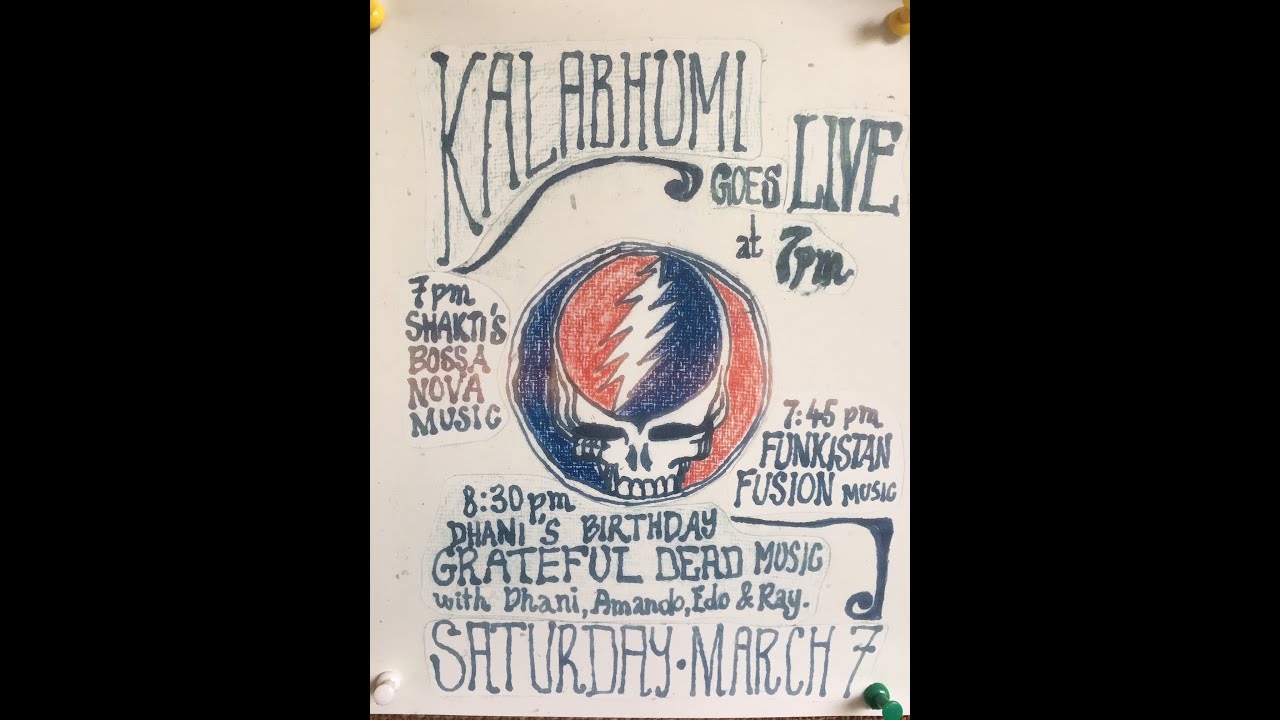 KALABHUMI
GOES LIVE
at 7pm
7pm
SHAKTI'S
BOSSA
NOVA
MUSIC
7:45 pm
FUNKISTAN
FUSION MUSIC
8:30pm
DHANI'S BIRTHDAY
GRATEFUL DEAD MUSIC
with Dhani, Amando, Edo & Ray.
SATURDAY·MARCH 7